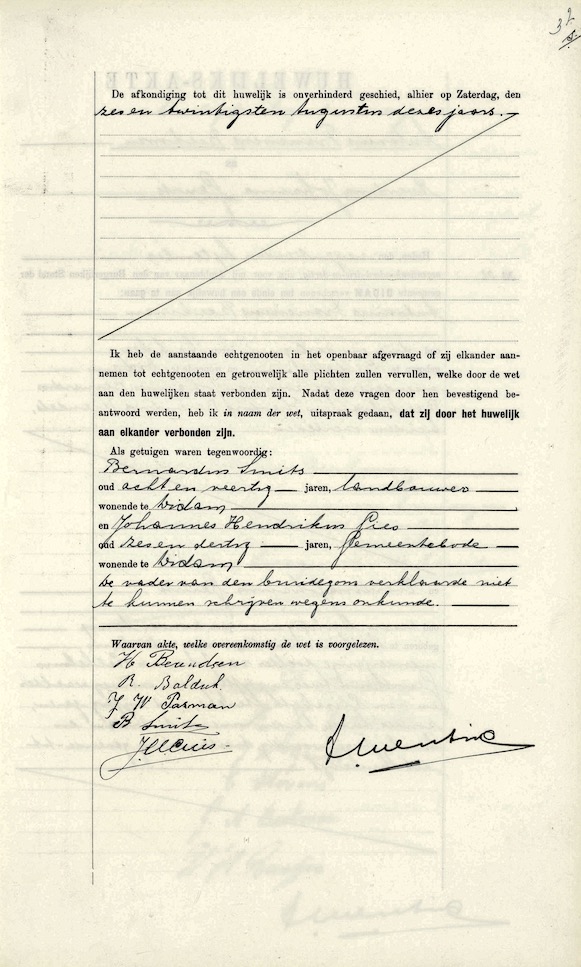 De afkondiging tot dit huwelijk is onverhinderd geschied, alhier op Zaterdag, den
zes en twintigsten Augustus dezes jaars.
Ik heb de aanstaande echtgenooten in het openbaar afgevraagd of zij elkander aan-
nemen tot echtgenooten en getrouwelijk alle plichten zullen vervullen, welke door de wet
aan den huwelijken staat verbonden zijn. Nadat deze vragen door hen bevestigend be-
antwoord werden, heb ik in naam der wet, uitspraak gedaan, dat zij door het huwelijk
aan elkander verbonden zijn.
Als getuigen waren tegenwoordig:
Bernardus Smits
oud acht en veertig jaren, landbouwer
wonende te Didam
en Johannes Hendrikus
oud zes en dertig jaren, gemeentebode
wonende te Didam
De vader van den bruidegom verklaarde niet
te kunnen schrijven wegens onkunde.
Waarvan akte, welke overeenkomstig de wet is voorgelezen.
H Berendsen
R.
J W
B Smits